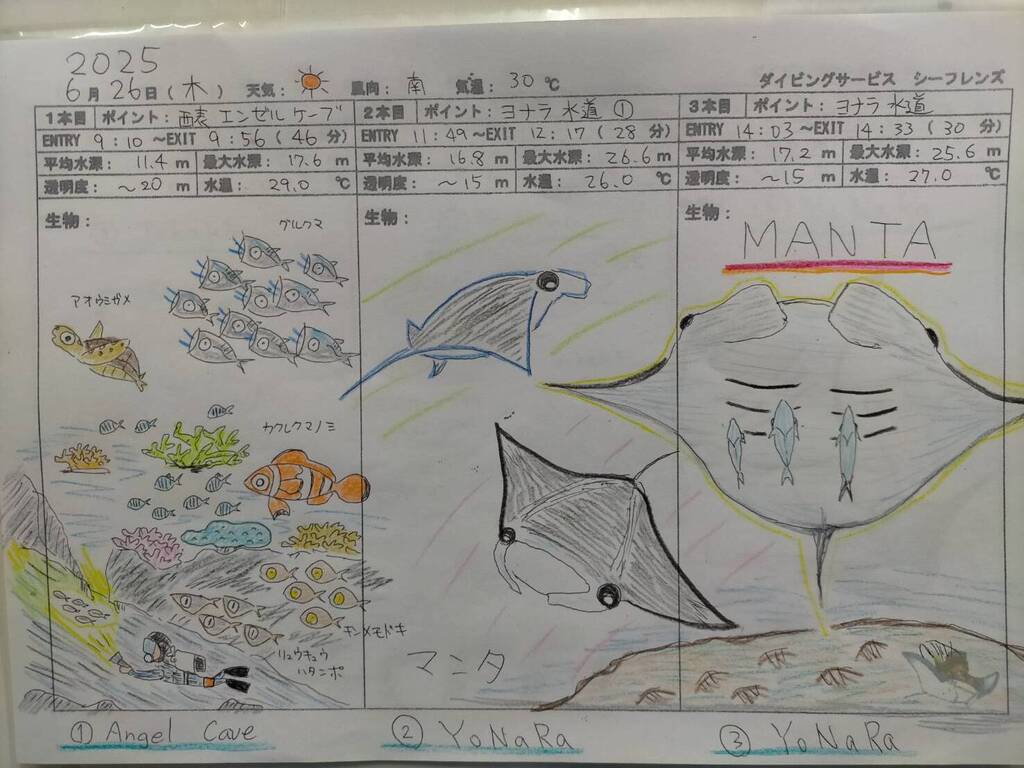 2025
6月26日(木) 天気: 風向: 南 気温: 30℃ ダイビングサービス シーフレンズ
1本目 ポイント: 西表 エンゼルケーブ
ENTRY 9:10 ~EXIT 9:56 (46 分)
平均水深: 11.4 m 最大水深: 17.6 m
透明度: ~20 m 水温: 29.0 ℃
生物:
グルクマ
アオウミガメ
カクレクマノミ
キンメモドキ
リュウキュウ
ハタンポ
① Angel Cave
2本目 ポイント: ヨナラ水道①
ENTRY 11:49 ~EXIT 12:17 (28 分)
平均水深: 16.8 m 最大水深: 26.6 m
透明度: ~15 m 水温: 26.0 ℃
生物:
マンタ
② YoNaRa
3本目 ポイント: ヨナラ水道
ENTRY 14:03 ~EXIT 14:33 (30 分)
平均水深: 17.2 m 最大水深: 25.6 m
透明度: ~15 m 水温: 27.0 ℃
生物:
MANTA
③ YoNaRa